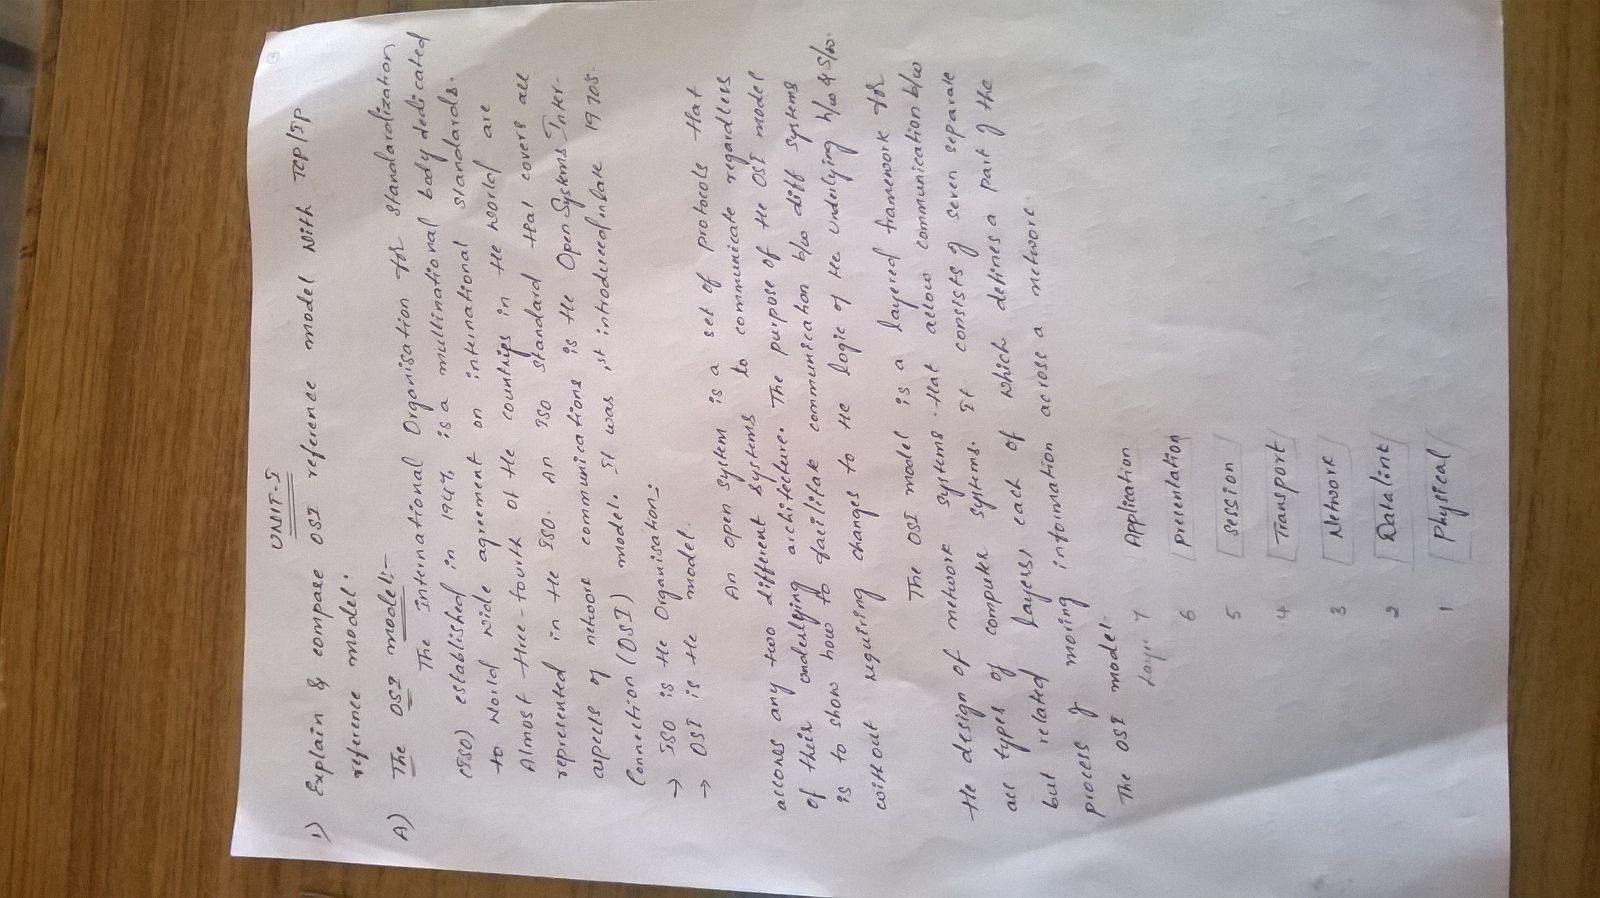 UNIT-I
1) Explain & compare OSI reference model with TCP/IP
reference model.
A) The OSI model:-
The International Organisation for Standardization
(ISO) established in 1947, is a multinational body dedicated
to World wide agreement on international standards.
Almost three-fourth of the countries in the world are
represented in the ISO. An ISO standard that covers all
aspects of network communications is the Open Systems Inter-
Connection (OSI) model. It was 1st introduced in late 1970s.
→ ISO is the Organisation.
→ OSI is the model.
An open system is a set of protocols that
allows any two different systems to communicate regardless
of their underlying architecture. The purpose of the OSI model
is to show how to facilitate communication b/w diff systems
without requiring changes to the logic of the underlying h/w & s/w.
The OSI model is a layered framework for
the design of network systems that allow communication b/w
all types of computer systems. It consists of seven separate
but related layers, each of which defines a part of the
process of moving information across a network.
The OSI model.
Layer 7 Application
6 Presentation
5 Session
4 Transport
3 Network
2 Datalink
1 Physical